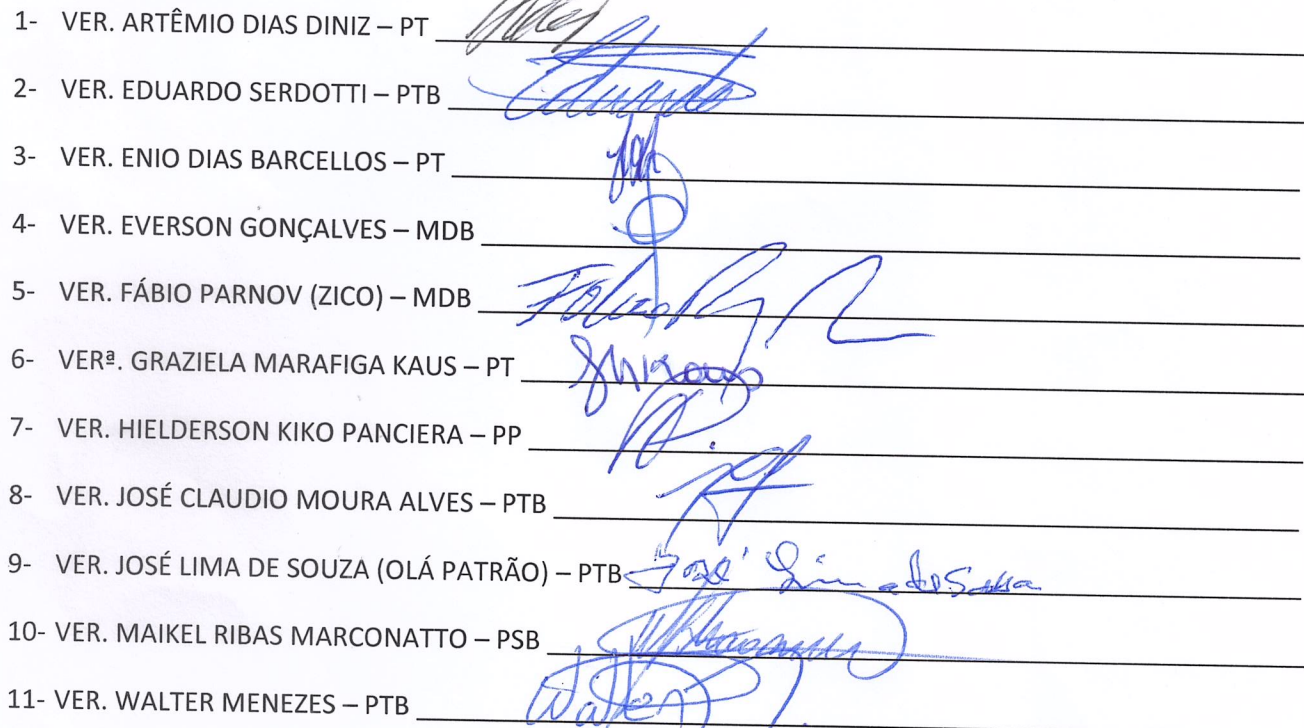 1- VER. ARTÊMIO DIAS DINIZ – PT
2- VER. EDUARDO SERDOTTI – PTB Eduardo
3- VER. ENIO DIAS BARCELLOS – PT
4- VER. EVERSON GONÇALVES – MDB
5- VER. FÁBIO PARNOV (ZICO) – MDB
6- VERª. GRAZIELA MARAFIGA KAUS – PT
7- VER. HIELDERSON KIKO PANCIERA – PP
8- VER. JOSÉ CLAUDIO MOURA ALVES – PTB
9- VER. JOSÉ LIMA DE SOUZA (OLÁ PATRÃO) – PTB José Lima de Souza
10- VER. MAIKEL RIBAS MARCONATTO – PSB
11- VER. WALTER MENEZES – PTB Walter